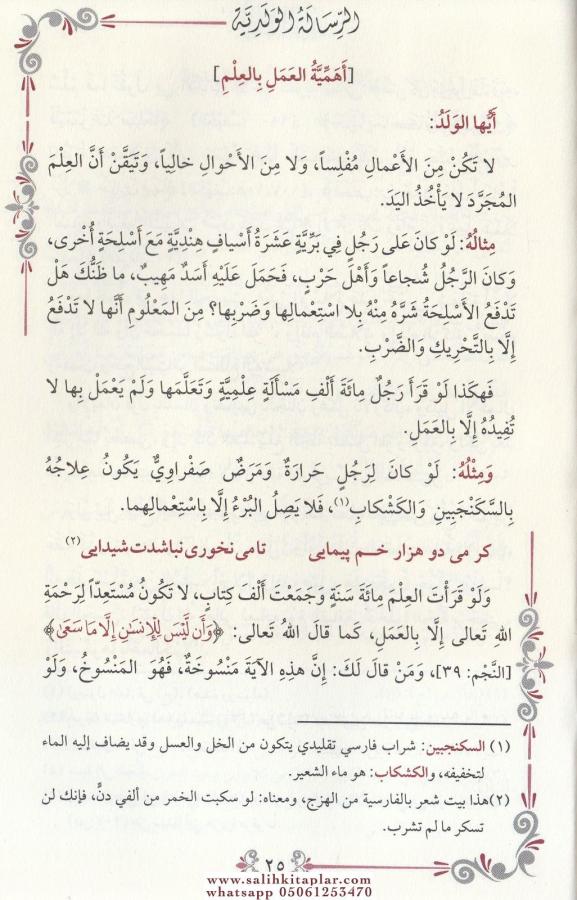 الرِّسَالَةُ الوَلَدِيَّة
[أَهَمِّيَّةُ العَمَلِ بِالعِلْمِ]
أَيُّها الوَلَدُ:
لا تَكُنْ مِنَ الأَعْمالِ مُفْلِساً، وَلا مِنَ الأَحْوالِ خالِياً، وَتَيَقَّنْ أَنَّ العِلْمَ
المُجَرَّدَ لا يَأْخُذُ اليَدَ.
مِثالُهُ: لَوْ كانَ عَلى رَجُلٍ فِي بَرِّيَّةٍ عَشَرَةُ أَسْيافٍ هِنْدِيَّةٍ مَعَ أَسْلِحَةٍ أُخْرى،
وَكانَ الرَّجُلُ شُجاعاً وَأَهْلَ حَرْبٍ، فَحَمَلَ عَلَيْهِ أَسَدٌ مَهِيبٌ، ما ظَنُّكَ هَلْ
تَدْفَعُ الأَسْلِحَةُ شَرَّهُ مِنْهُ بِلا اسْتِعْمالِها وَضَرْبِها؟ مِنَ المَعْلُومِ أَنَّها لا تَدْفَعُ
إِلَّا بِالتَّحْرِيكِ وَالضَّرْبِ.
فَهكَذا لَوْ قَرَأَ رَجُلٌ مِائَةَ أَلْفِ مَسْأَلَةٍ عِلْمِيَّةٍ وَتَعَلَّمَها وَلَمْ يَعْمَلْ بِها لا
تُفِيدُهُ إِلَّا بِالعَمَلِ.
وَمِثْلُهُ: لَوْ كانَ لِرَجُلٍ حَرارَةٌ وَمَرَضٌ صَفْراوِيٌّ يَكُونُ عِلاجُهُ
بِالسَّكَنْجَبِينِ وَالكَشْكابِ(١)، فَلا يَصِلُ البُرْءُ إِلَّا بِاسْتِعْمالِهِما.
كر مى دو هزار خم پیمایى تامى نخورى نباشدت شیدایى(٢)
وَلَوْ قَرَأْتَ العِلْمَ مِائَةَ سَنَةٍ وَجَمَعْتَ أَلْفَ كِتابٍ، لا تَكُونُ مُسْتَعِدّاً لِرَحْمَةِ
اللهِ تَعالى إِلَّا بِالعَمَلِ، كَما قالَ اللهُ تَعالى: ﴿وَأَن لَّيْسَ لِلْإِنسَٰنِ إِلَّا مَا سَعَىٰ﴾
[النَّجْم: ٣٩]، وَمَنْ قالَ لَكَ: إِنَّ هذِهِ الآيَةَ مَنْسُوخَةٌ، فَهُوَ المَنْسُوخُ، وَلَوْ
(١) السكنجبين: شراب فارسي تقليدي يتكون من الخل والعسل وقد يضاف إليه الماء
لتخفيفه، والكشكاب: هو ماء الشعير.
(٢) هذا بيت شعر بالفارسية من الهزج، ومعناه: لو سكبت الخمر من ألفي دنٍّ، فإنك لن
تسكر ما لم تشرب.
٢٥
www.salihkitaplar.com
whatsapp 05061253470